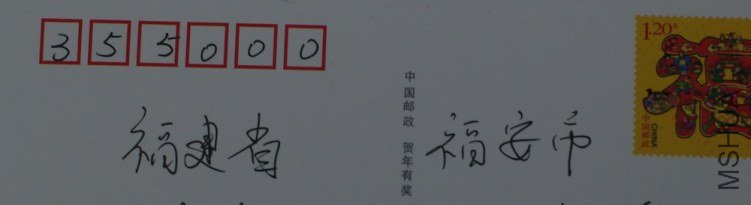 355000
福建省 福安市
中国邮政 贺年有奖
1.20元
中国邮政
CHINA